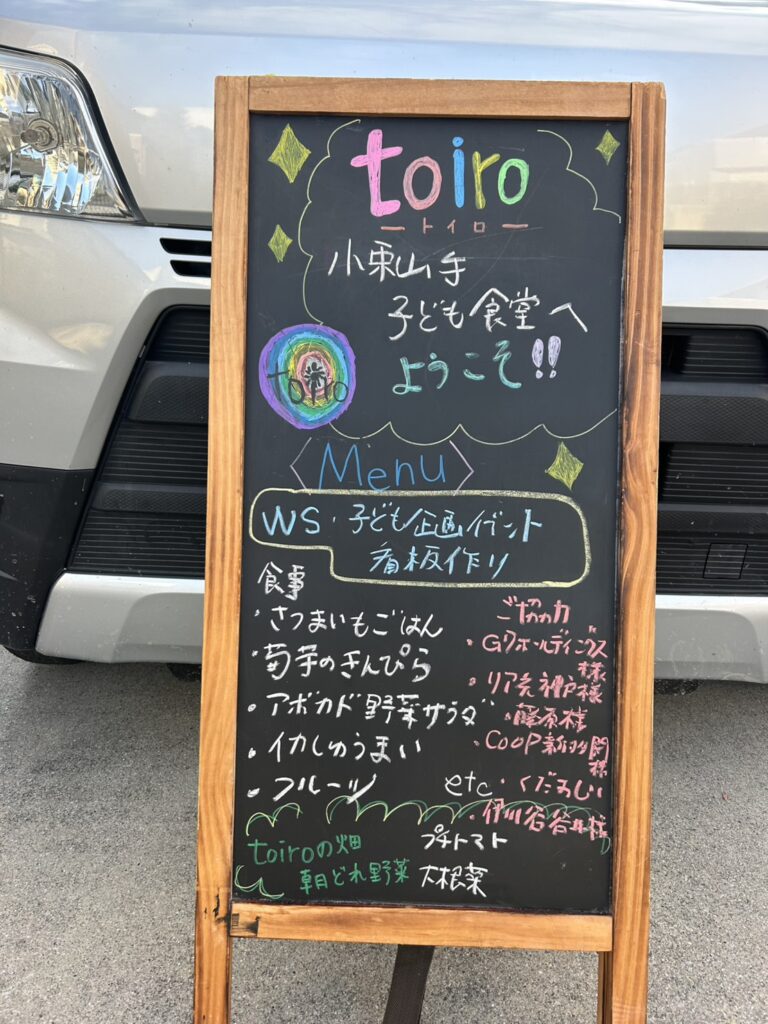 toiro
ートイロー
小束山手
子ども食堂へ
ようこそ!!
toiro
Menu
WS・子ども企画イベント
看板作り
食事
・さつまいもごはん
・菊芋のきんぴら
・アボカド野菜サラダ
・イカしゅうまい
・フルーツ etc
ご協力
・Gワホールディングス
様
・様
・藤原様
・COOP
様
・くだ
・伊川谷谷様
toiroの畑
朝どれ野菜
プチトマト
大根菜